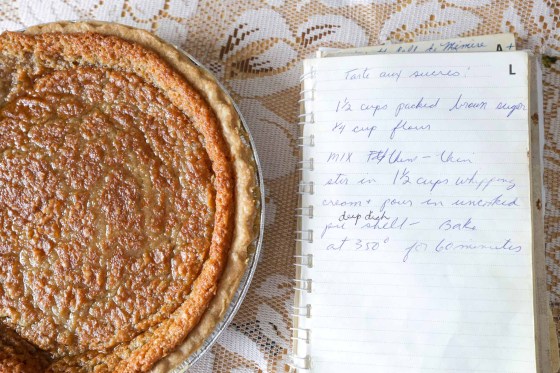 to Mémère
A
L
Tarte aux sucres!
1 1/2 cups packed brown sugar
1/4 cup flour
MIX - then
stir in 1 1/2 cups whipping
cream + pour in uncooked
deep dish
pie shell - Bake
at 350° for 60 minutes